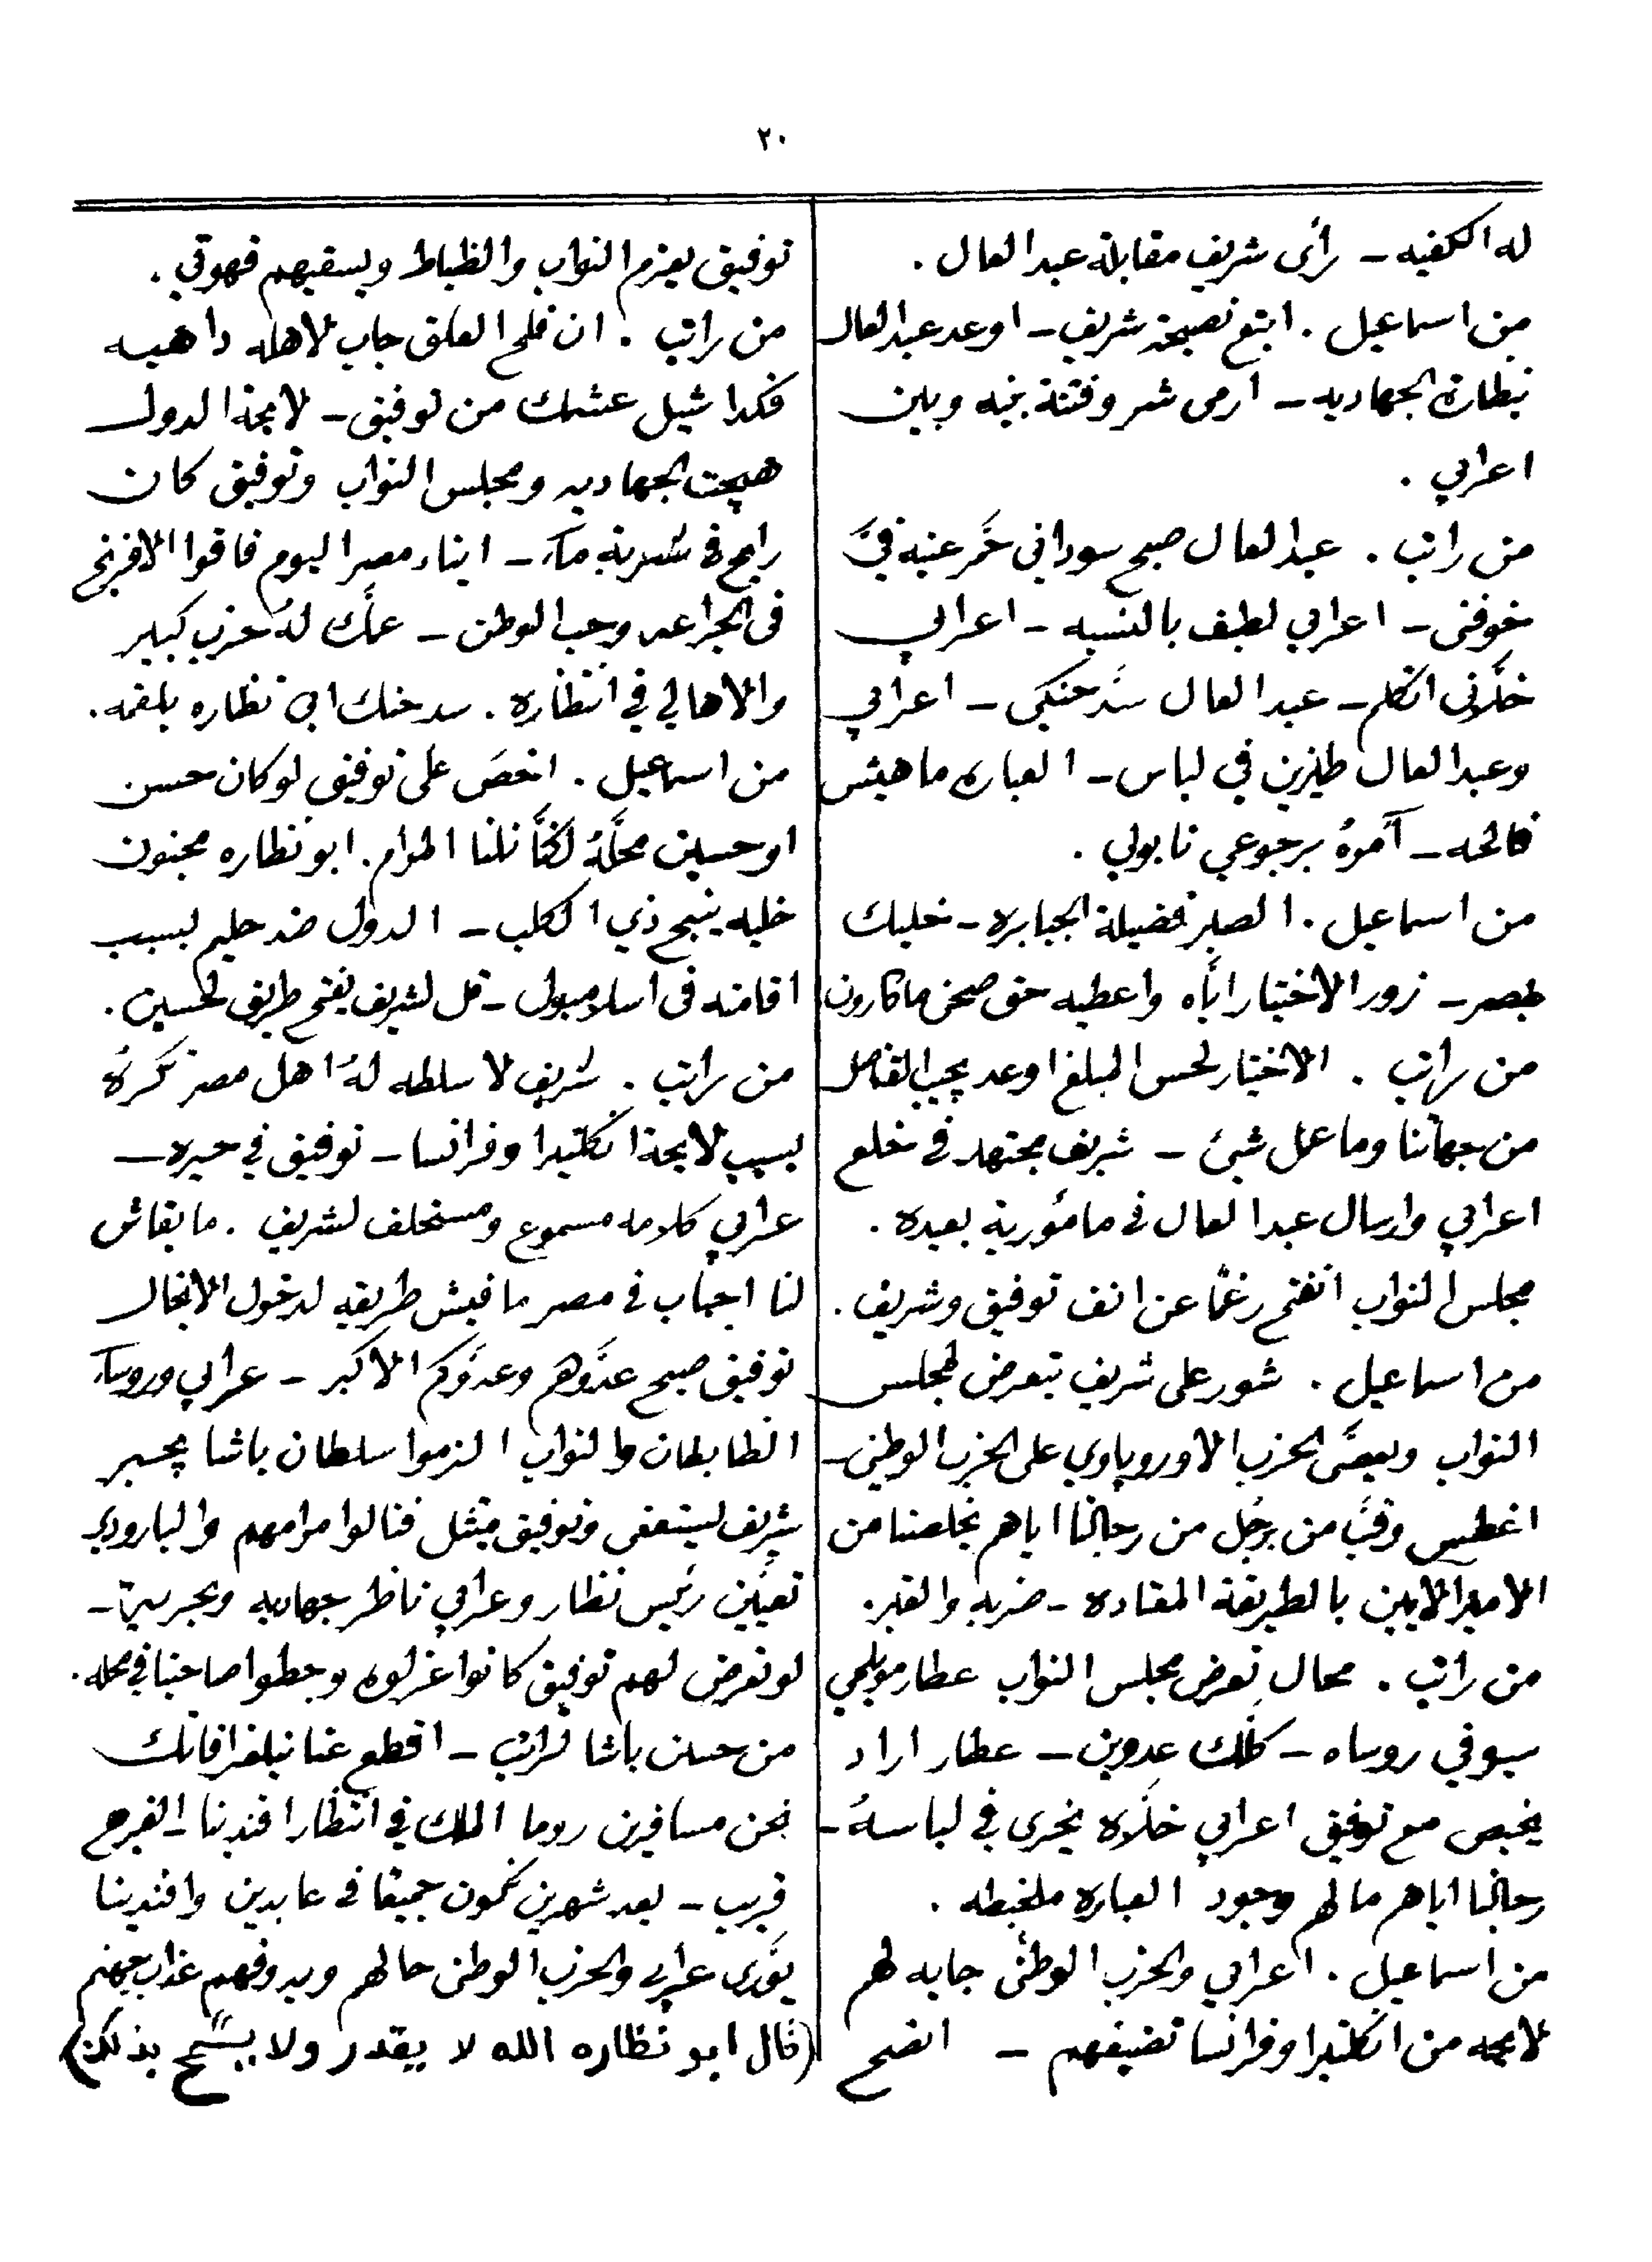 ٢٠
له الكفيه - رأى شريف مقابلة عبد العال .
من اسماعيل . ابتع نصيحة شريف - اوعد عبد العال
بنظارة الجهاديه - ارمى شر وفتنة بينه وبين
اعرابي .
من راتب . عبد العال صبح سوداني حمر عينه فيَّ
خوفنى - اعرابي لطيف بالنسبه - اعرابي
خلَّانى اتكلم - عبد العال سَدَّ حنكى - اعرابي
وعبد العال طيزين في لباس - العباره ما هيش
فالحه - آمرهُ برجوعي نابولي .
من اسماعيل . الصبر فضيلة الجبابره - خليك
بمصر - زور الاختيار ايَّاه واعطيه حق صحن ماكارون
من راتب . الاختيار لحس المبلغ اوعد يجيب القناصل
من جهاتنا وما عمل شيئ - شريف مجتهد في خلع
اعرابي وارسال عبد العال في مأمورية بعيده .
مجلس النواب انفتح رغمًا عن انف توفيق وشريف .
من اسماعيل . شور على شريف يتعرض لمجلس
النواب ويعصَّى الحزب الاوروپاوي على الحزب الوطني -
اغطيس وقبَّ من برجُل من رجالنا اياهم يخلصنا من
الاميرالايين بالطريقة المعتاده - ضربه والقبر .
من راتب . محال تعرض مجلس النواب عطار مويلحي
سيوفي روساه - كلَّك عدوين - عطار اراد
يخبص مع توفيق اعرابي خلَّاه يخرى في لباسهُ -
رجالنا اياهم ما لهم وجود العباره ملخبطه .
من اسماعيل . اعرابي والحزب الوطنى جايه لهم
لايحه من انكلتيرا وفرانسا تضيفهم - انصح
توفيق يعزم النواب والظباط ويسقيهم قهوتي .
من راتب . ان فلح العلق جاب لاهله داهيه
فكدا شيل عشمك من توفيق - لايحة الدول
هيجت الجهاديه ومجلس النواب وتوفيق كان
رايح في شربة ماء - ابناء مصر اليوم فاقوا الافرنج
في الجراعه وحب الوطن - عمَّك لهُ حزب كبير
والاهالي في انتظاره . سد حنك ابي نظاره بلقمه .
من اسماعيل . اخصَ على توفيق لو كان حسن
او حسين محلَّهُ لكنَّا نلنا المرام . ابو نظاره مجنون
خليه ينبح ذي الكلب - الدول ضد حليم بسبب
اقامته في اسلامبول - قل لشريف يفتح طريق لحسين .
من راتب . شريف لا سلطه لهُ اهل مصر تكرهُ
بسبب لايحة انكلتيرا وفرانسا - توفيق في حيره -
عرابي كلامه مسموع ومستحلف لشريف . ما بقاش
لنا احباب في مصر ما فيش طريقه لدخول الانجال
توفيق صبح عدوَّهم وعدوَّكم الاكبر - عرابي وروساء
الظابطان والنواب الزموا سلطان باشا يجبر
شريف ليستعفى وتوفيق يمتثل فنالوا مرامهم والبارودي
تعيَّين رئيس نظار وعرابي ناظر جهاديه وبحريه -
لو تعرض لهم توفيق كانوا عزلوه وحطوا صاحبنا في محله .
من حسن باشا لراتب - اقطع عنا تيلغرافاتك
نحن مسافرين روما الملك في انتظار افندينا - الفرج
قريب - بعد شهرين نكون جميعًا في عابدين وافندينا
يورَّى عرابي والحزب الوطنى حالهم ويدوقهم عذاب جهنم
(قال ابو نظاره الله لا يقدر ولا يسمح بذلك)